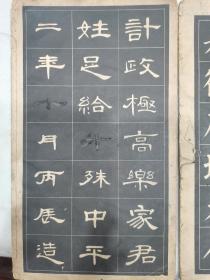 計政極高樂家君
姓足給殊中平
二年十月丙辰造